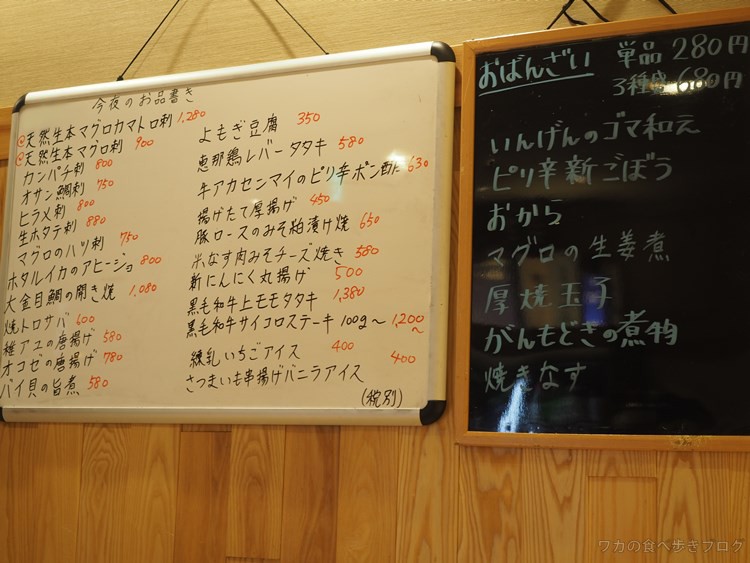 今夜のお品書き
天然生本マグロカマトロ刺 1,280
天然生本マグロ刺 900
カンパチ刺 800
オサン鯛刺 750
ヒラメ刺 800
生ホタテ刺 880
マグロのハツ刺 750
ホタルイカのアヒージョ 800
大金目鯛の開き焼 1,080
焼トロサバ 600
稚アユの唐揚げ 580
オコゼの唐揚げ 780
バイ貝の旨煮 580
よもぎ豆腐 350
恵那鶏レバータタキ 580
牛アカセンマイのピリ辛ポン酢 630
揚げたて厚揚げ 450
豚ロースのみそ粕漬け焼 650
米なす肉みそチーズ焼き 580
新にんにく丸揚げ 500
黒毛和牛上モモタタキ 1,380
黒毛和牛サイコロステーキ 100g〜 1,200〜
練乳いちごアイス 400
さつまいも串揚げバニラアイス 400
(税別)
おばんざい 単品 280円
3種盛 680円
いんげんのゴマ和え
ピリ辛新ごぼう
おから
マグロの生姜煮
厚焼玉子
がんもどきの煮物
焼きなす
ワカの食べ歩きブログ